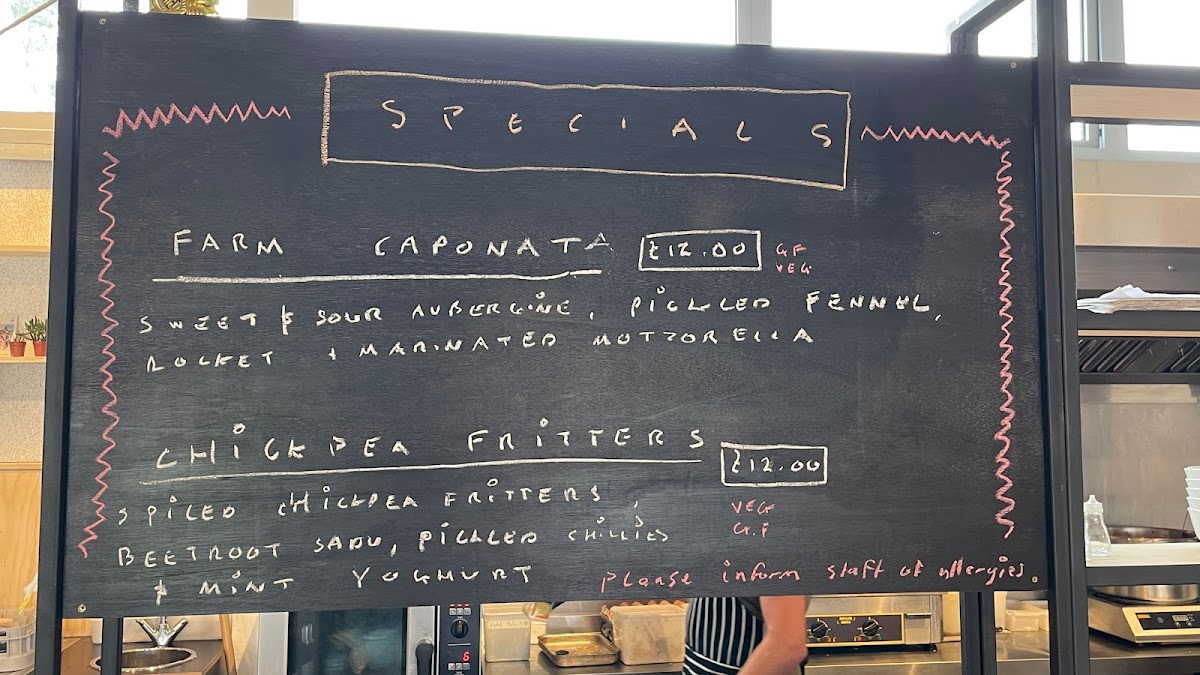 SPECIALS
FARM CAPONATA £12.00 GF
VEG
SWEET & SOUR AUBERGINE, PICKLED FENNEL,
ROCKET + MARINATED MOTZORELLA
CHICKPEA FRITTERS £12.00
SPICED CHICKPEA FRITTERS, VEG
BEETROOT SADU, PICKLED CHILLIES G.F
& MINT YOGHURT
please inform staff of allergies